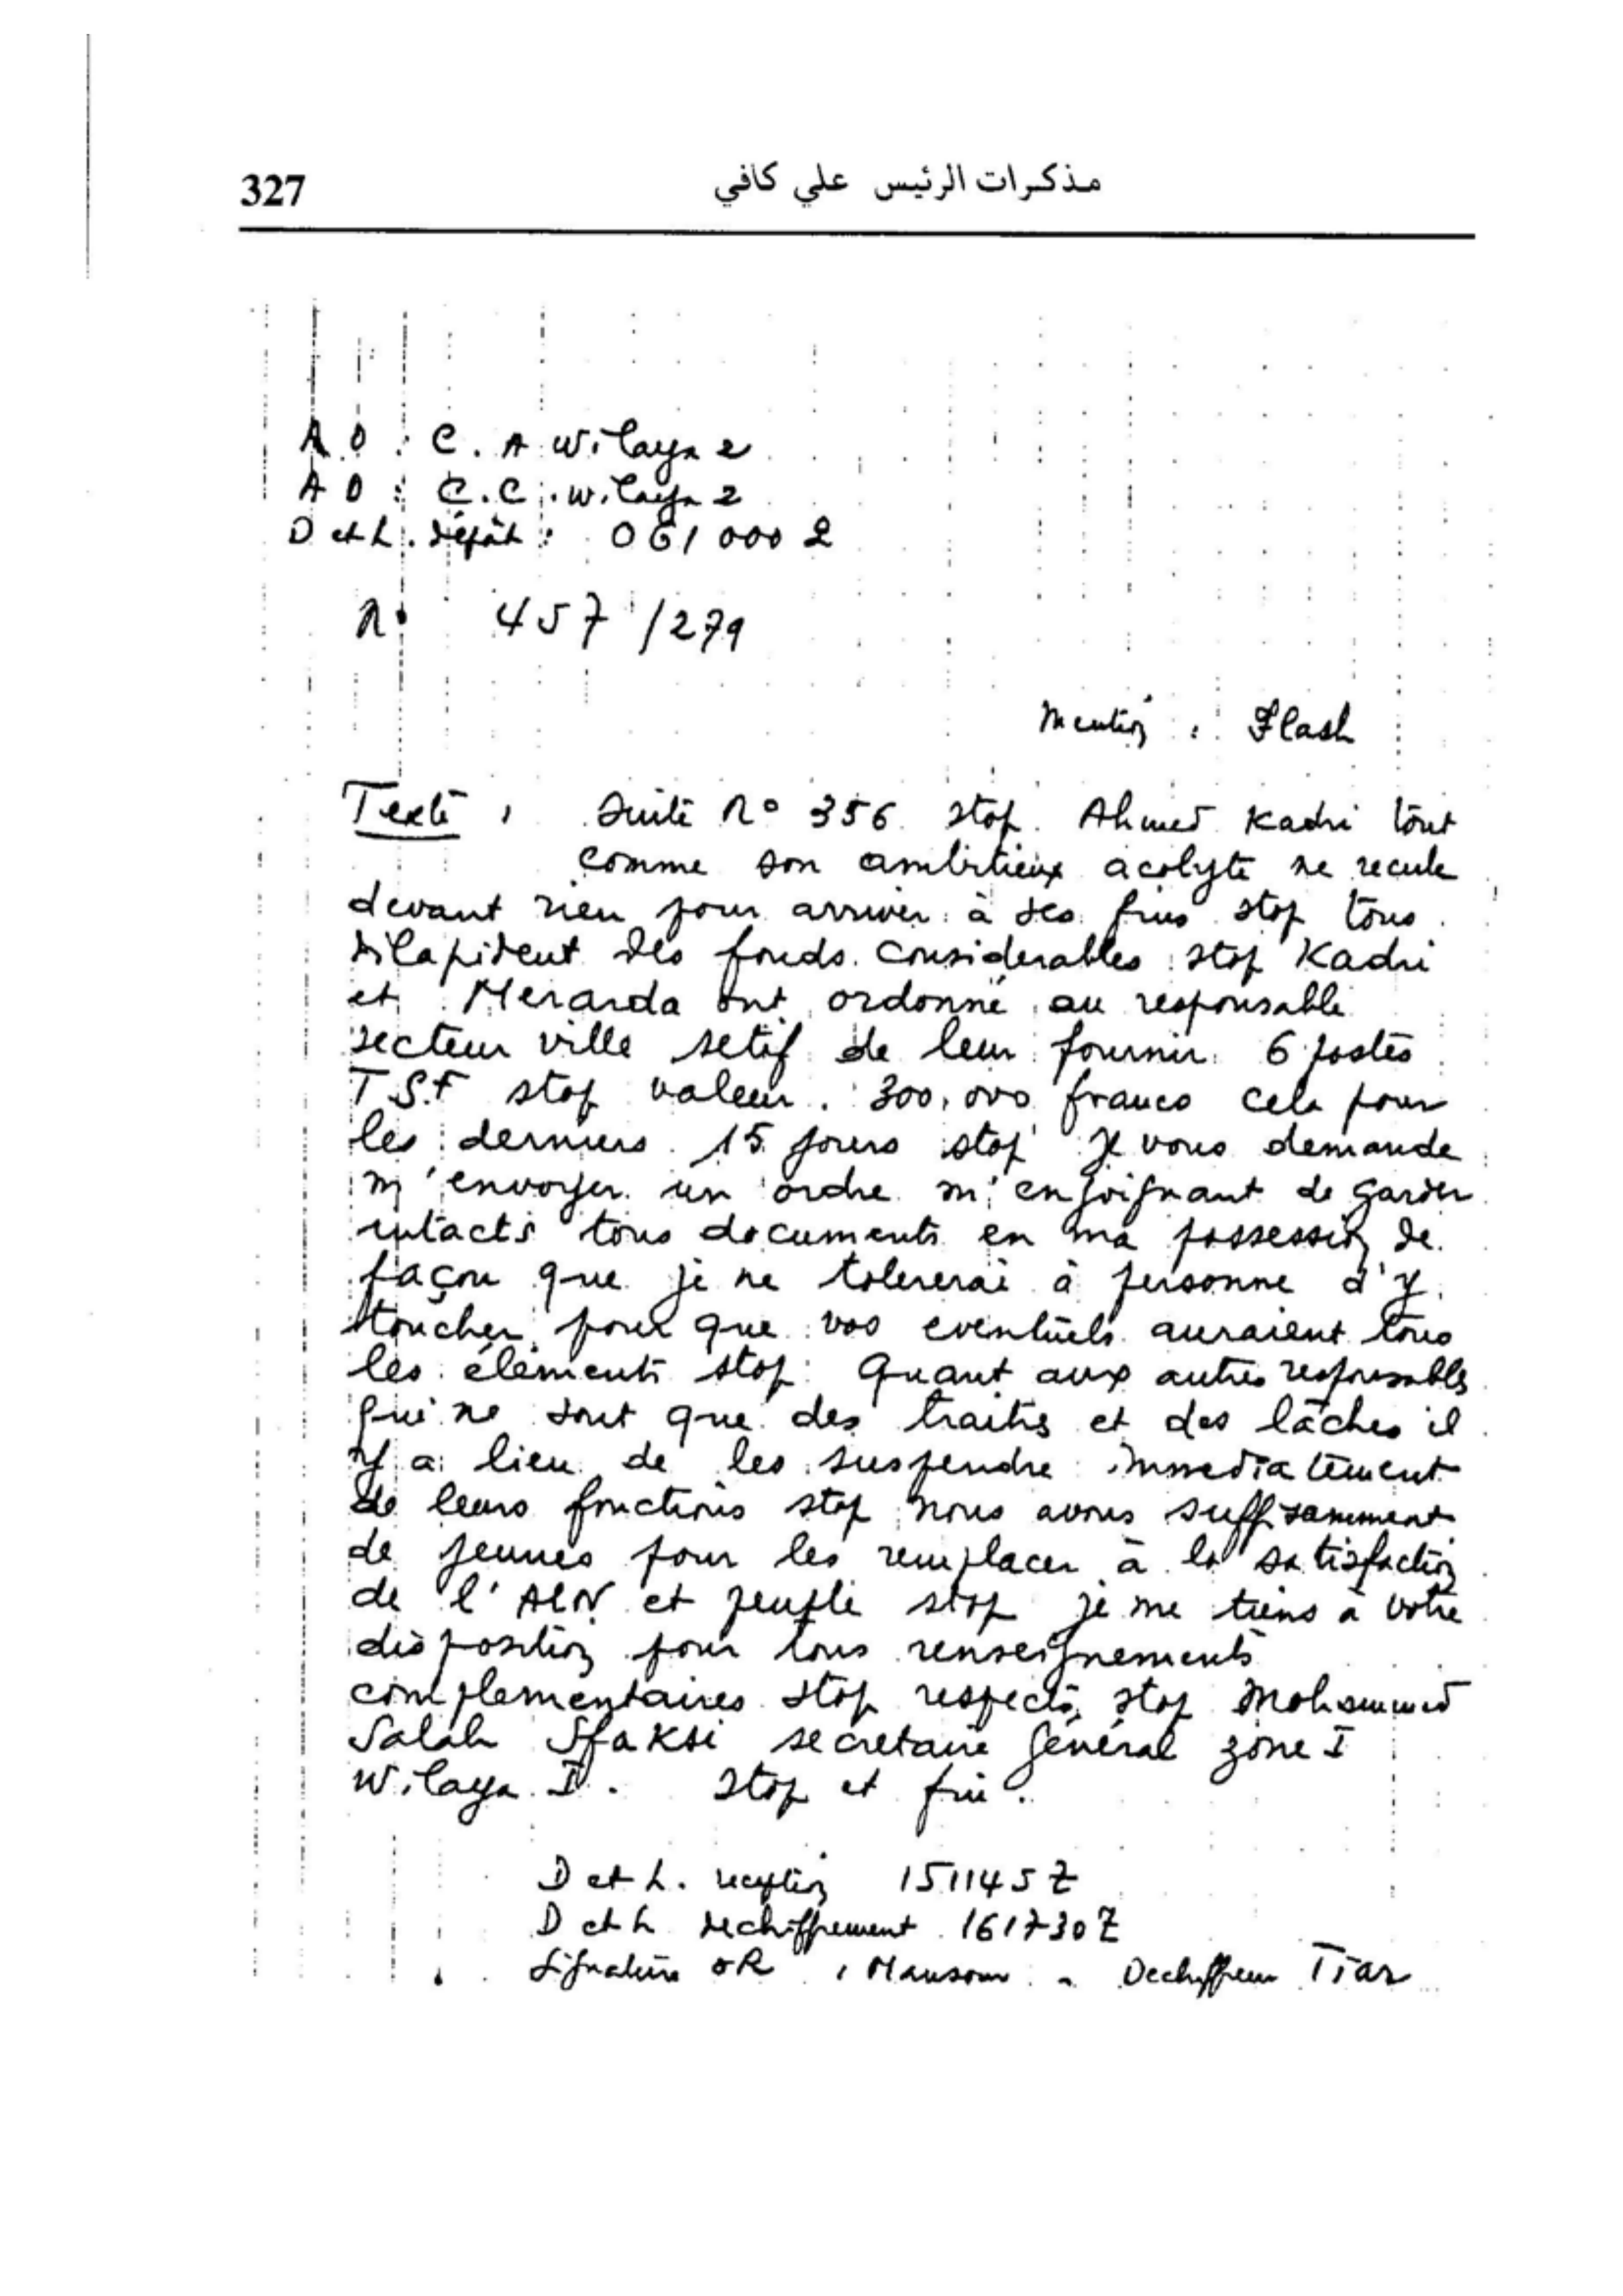 327 مذكرات الرئيس علي كافي
A O : C. A wilaya 2
A O : C.C. wilaya 2
D et h. dépôt : 061000 Z
N° 457 / 279
Mention : Flash
Texte : Suite N° 356 stop. Ahmed Kadri tout
comme son ambitieux acolyte ne recule
devant rien pour arriver à ses fins stop tous
dilapident des fonds considerables stop Kadri
et Merarda ont ordonné au responsable
secteur ville setif de leur fournir 6 postes
T S.F stop valeur . 300.000 francs cela pour
les derniers 15 jours stop je vous demande
m'envoyer un ordre m'enjoignant de garder
intacts tous documents en ma possession de
façon que je ne tolererai à personne d'y
toucher pour que vos eventuels auraient tous
les éléments stop Quant aux autres responsables
qui ne sont que des traitres et des lâches il
y a lieu de les suspendre immediatement
de leurs fonctions stop nous avons suffisamment
de jeunes pour les remplacer à la satisfaction
de l'ALN et peuple stop je me tiens à votre
disposition pour tous renseignements
complementaires stop respects stop Mohammed
Salah Sfaksi secretaire général zone I
Wilaya I. Stop et fin.
D et h. reception 151145 Z
D et h dechiffrement 161730 Z
Signature OR : Mansour - Dechiffreur Tiar